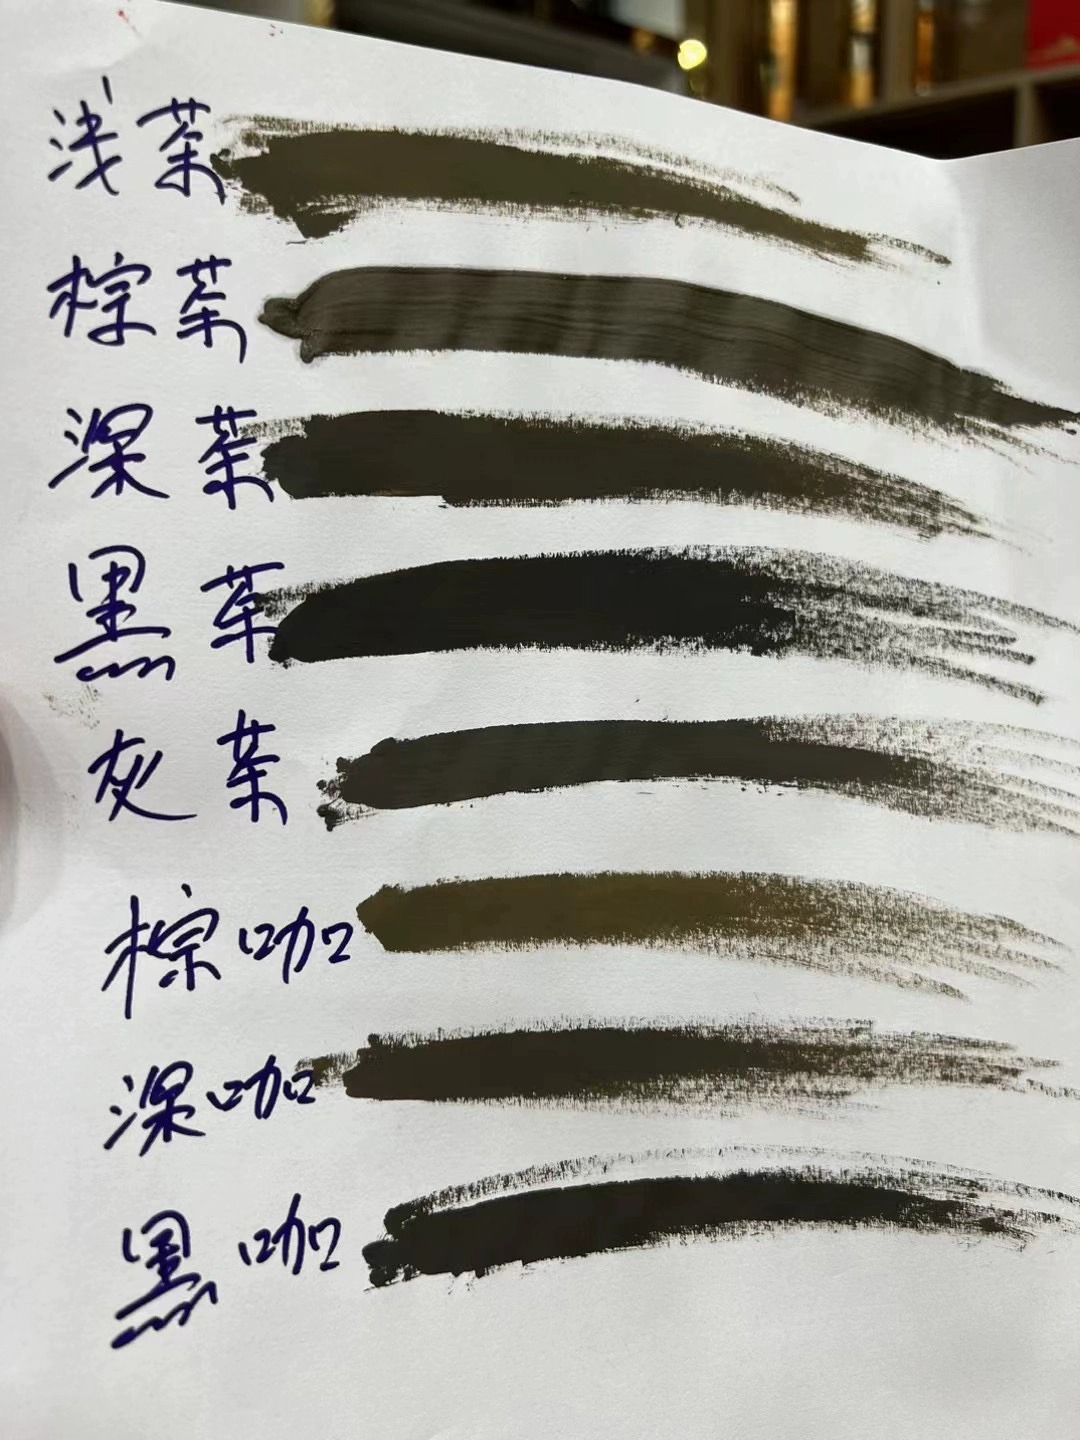 浅茶
棕茶
深茶
黑茶
灰茶
棕咖
深咖
黑咖